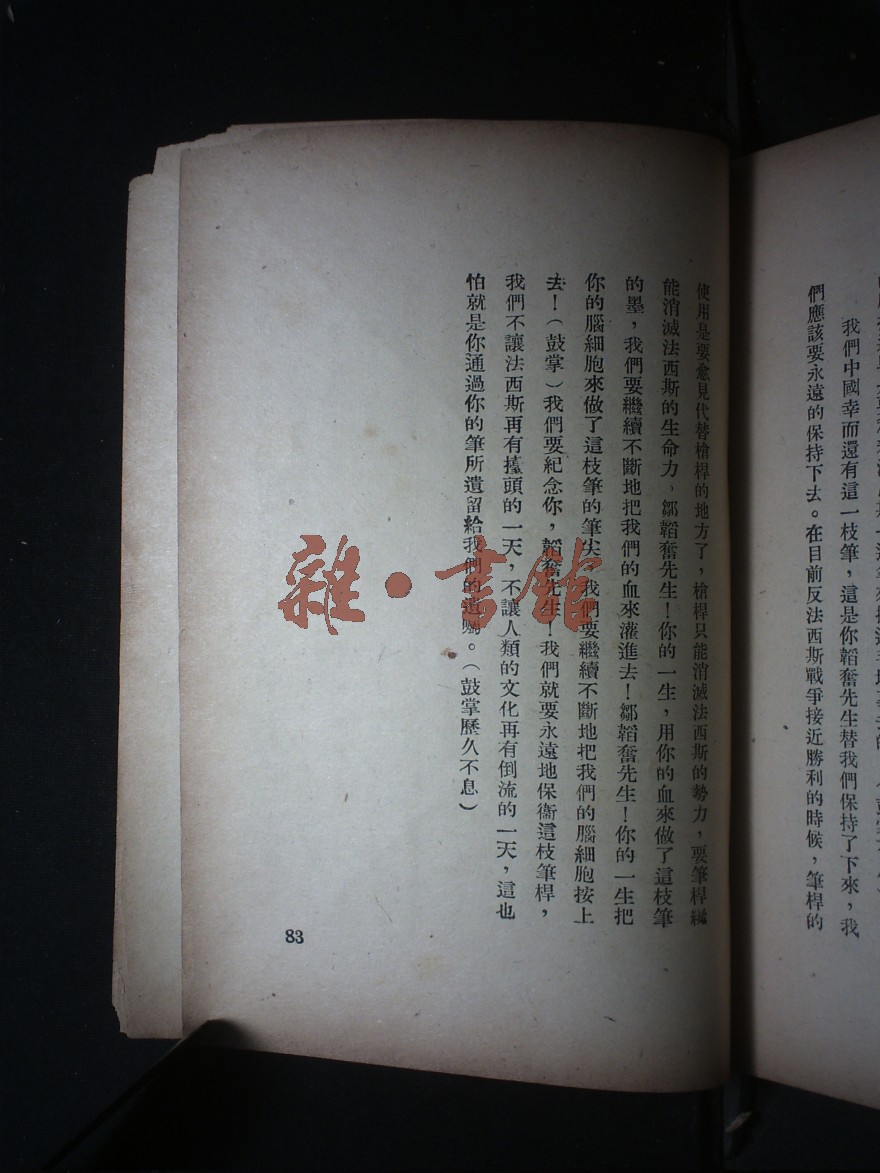 我們中國幸而還有這一枝筆，這是你韜奮先生替我們保持了下來，我
們應該要永遠的保持下去。在目前反法西斯戰爭接近勝利的時候，筆桿的
使用是要愈見代替槍桿的地方了，槍桿只能消滅法西斯的勢力，要筆桿纔
能消滅法西斯的生命力，鄒韜奮先生！你的一生，用你的血來做了這枝筆
的墨，我們要繼續不斷地把我們的血來灌進去！鄒韜奮先生！你的一生把
你的腦細胞來做了這枝筆的筆尖，我們要繼續不斷地把我們的腦細胞按上
去！（鼓掌）我們要紀念你，韜奮先生！我們就要永遠地保衞這枝筆桿，
我們不讓法西斯再有擡頭的一天，不讓人類的文化再有倒流的一天，這也
怕就是你通過你的筆所遺留給我們的遺囑。（鼓掌歷久不息）
83
雜·書館